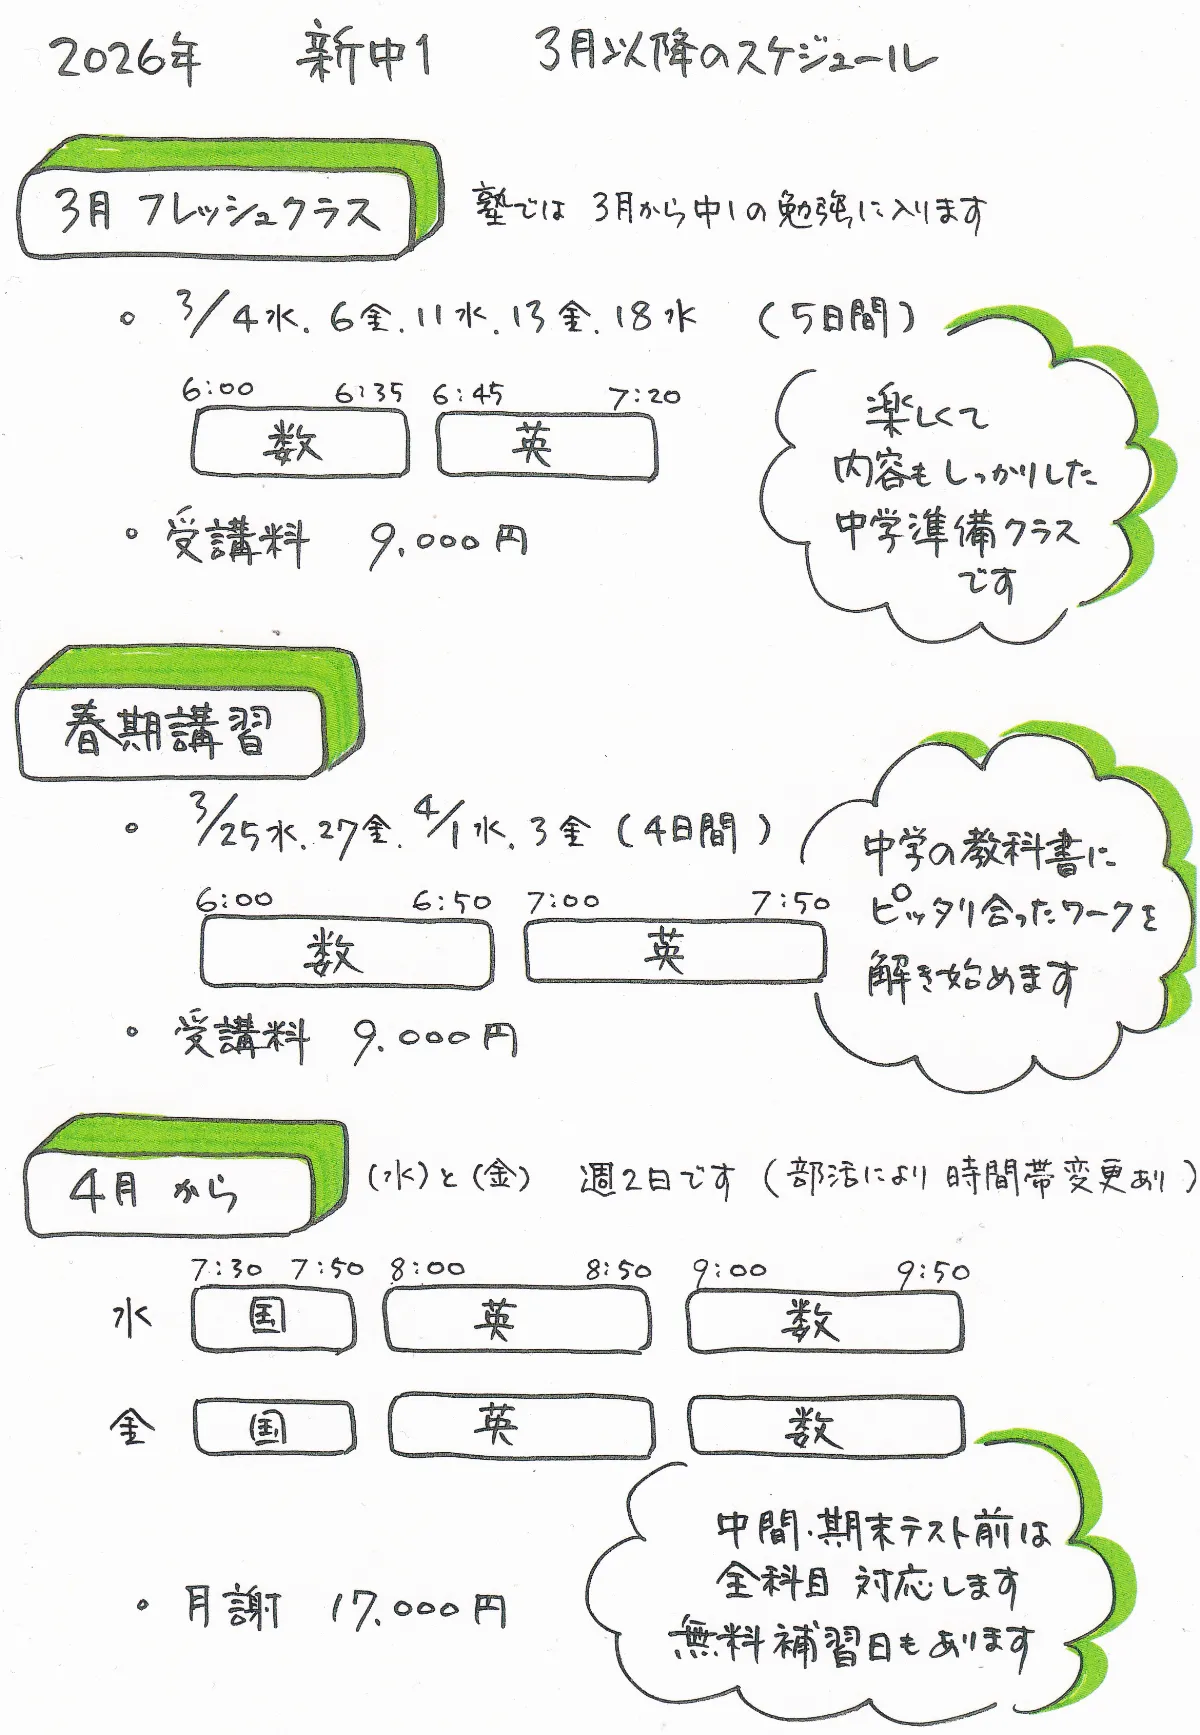 2026年 新中1 3月以降のスケジュール
3月 フレッシュクラス 塾では 3月から中1の勉強に入ります
○ 3/4水.6金.11水.13金.18水 (5日間)
6:00 6:35 6:45 7:20
数 英
楽しくて
内容もしっかりした
中学準備クラス
です
○ 受講料 9,000円
春期講習
○ 3/25水.27金.4/1水.3金(4日間)
6:00 6:50 7:00 7:50
数 英
中学の教科書に
ピッタリ合ったワークを
解き始めます
○ 受講料 9,000円
4月 から (水)と(金) 週2日です (部活により 時間帯変更あり)
7:30 7:50 8:00 8:50 9:00 9:50
水 国 英 数
金 国 英 数
○ 月謝 17,000円
中間.期末テスト前は
全科目 対応します
無料補習日もあります